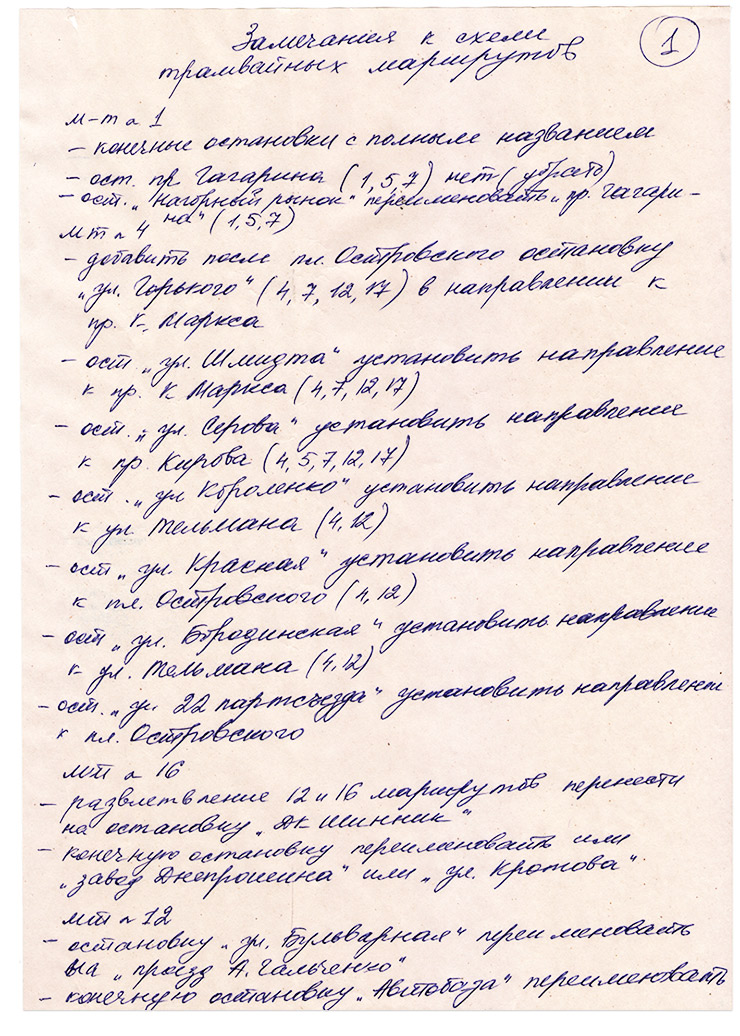 Замечания к схеме
трамвайных маршрутов
1
М-т № 1
- конечные остановки с полным названием
- ост. пр Гагарина (1,5,7) нет (убрать)
- ост. „Нагорный рынок" переименовать „пр. Гагари-
на" (1,5,7)
Мт № 4
- добавить после пл. Островского остановку
„ул. Горького" (4,7,12,17) в направлении к
пр. К. Маркса
- ост „ул. Шмидта" установить направление
к пр. К Маркса (4,7,12,17)
- ост. „ул. Серова" установить направление
к пр. Кирова (4,5,7,12,17)
- ост. „ул Короленко" установить направление
к ул. Тельмана (4,12)
- ост „ул. Красная" установить направление
к пл. Островского (4,12)
- ост „ул. Бородинская" установить направление
к ул. Тельмана (4,12)
- ост. „ул. 22 партсъезда" установить направлении
к пл. Островского
Мт № 16
- развлетвление 12 и 16 маршрутов перенести
на остановку „ДК Шинник"
- конечную остановку переименовать или
„завод Днепрошина" или „ул. Кротова"
Мт № 12
- остановку „ул. Бульварная" переименовать
на „проезд А. Гальченко"
- конечную остановку „Автобаза" переименовать